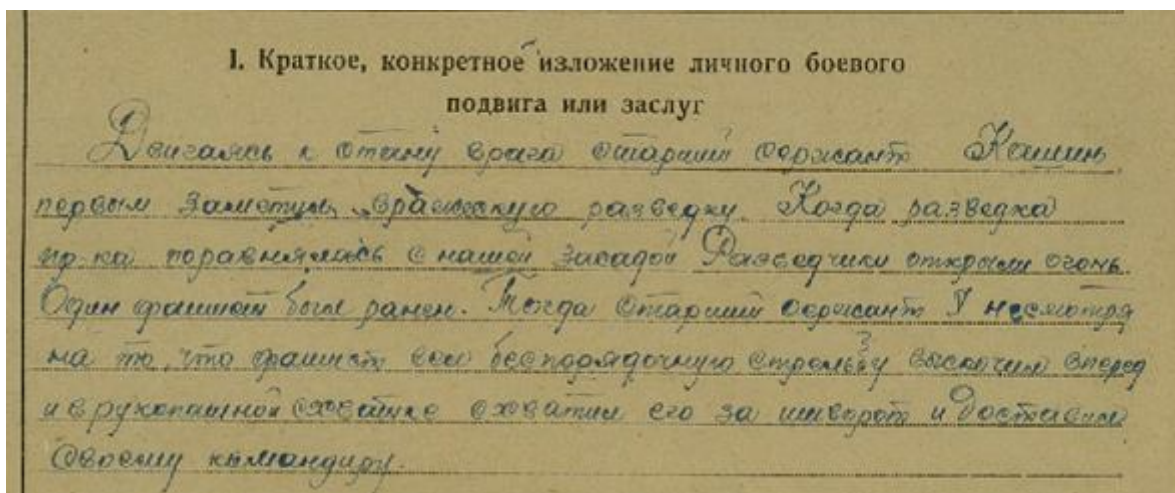 I. Краткое, конкретное изложение личного боевого
подвига или заслуг
Двигаясь к стану врага старший сержант Кашин
первым заметил вражескую разведку. Когда разведка
пр-ка поравнялась с нашей засадой Разведчики открыли огонь.
Один фашист был ранен. Тогда старший сержант несмотря
на то, что фашист вел беспорядочную стрельбу выскочил вперед
и в рукопашной схватке схватил его за шиворот и доставил
своему командиру.